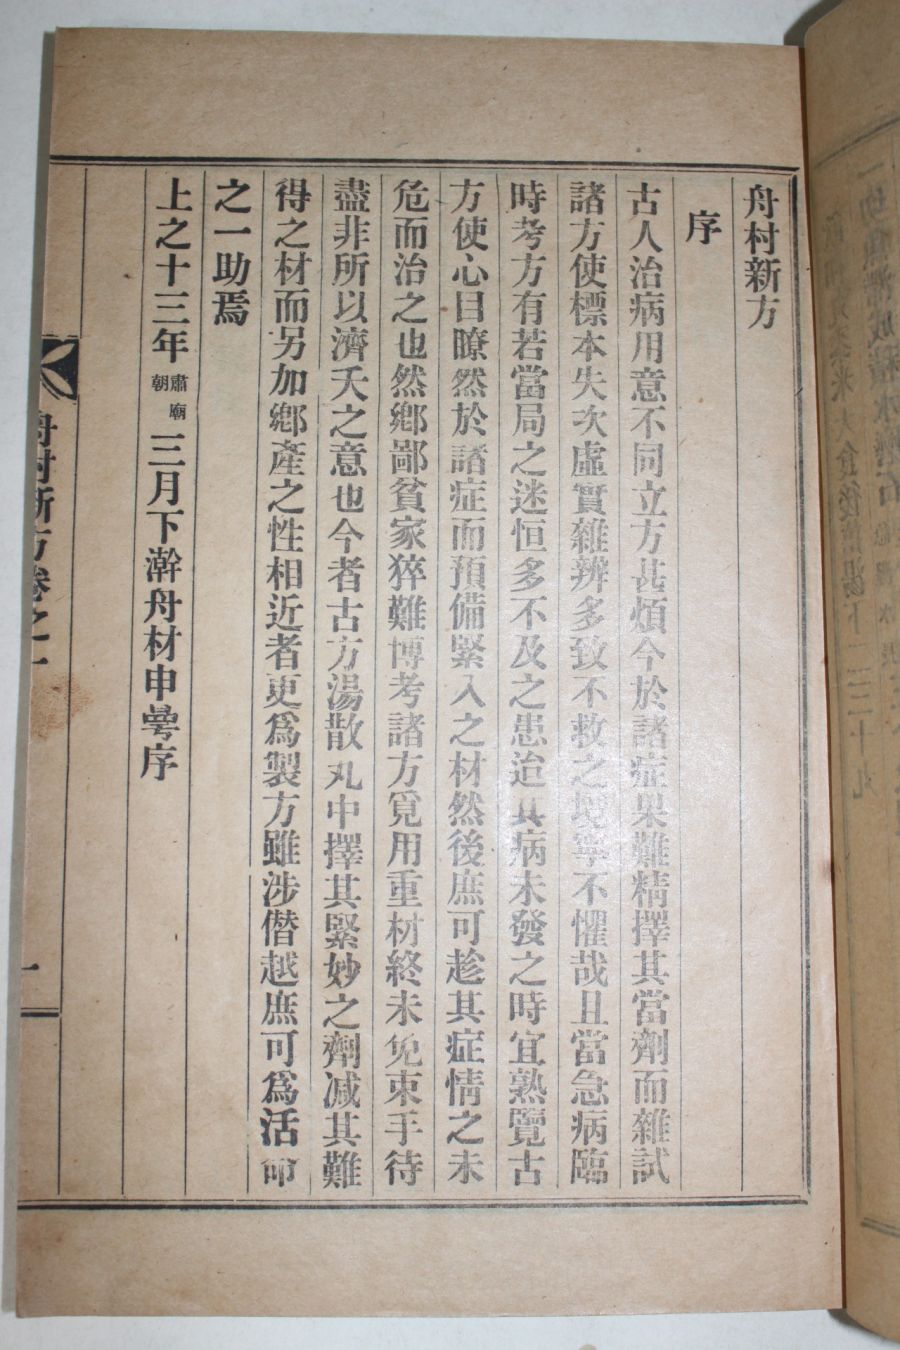 舟村新方
序
古人治病用意不同立方甚煩今於諸症果難精擇其當劑而雜試
諸方使標本失次虛實雜辨多致不救之境寧不懼哉且當急病臨
時考方有若當局之迷恒多不及之患迨其病未發之時宜熟覽古
方使心目瞭然於諸症而預備緊入之材然後庶可趁其症情之未
危而治之也然鄕鄙貧家猝難博考諸方覓用重材終未免束手待
盡非所以濟夭之意也今者古方湯散丸中擇其緊妙之劑减其難
得之材而另加鄕產之性相近者更爲製方雖涉僭越庶可爲活命
之一助焉
上之十三年肅廟朝三月下澣舟村申曼序
舟村新方卷之一
一